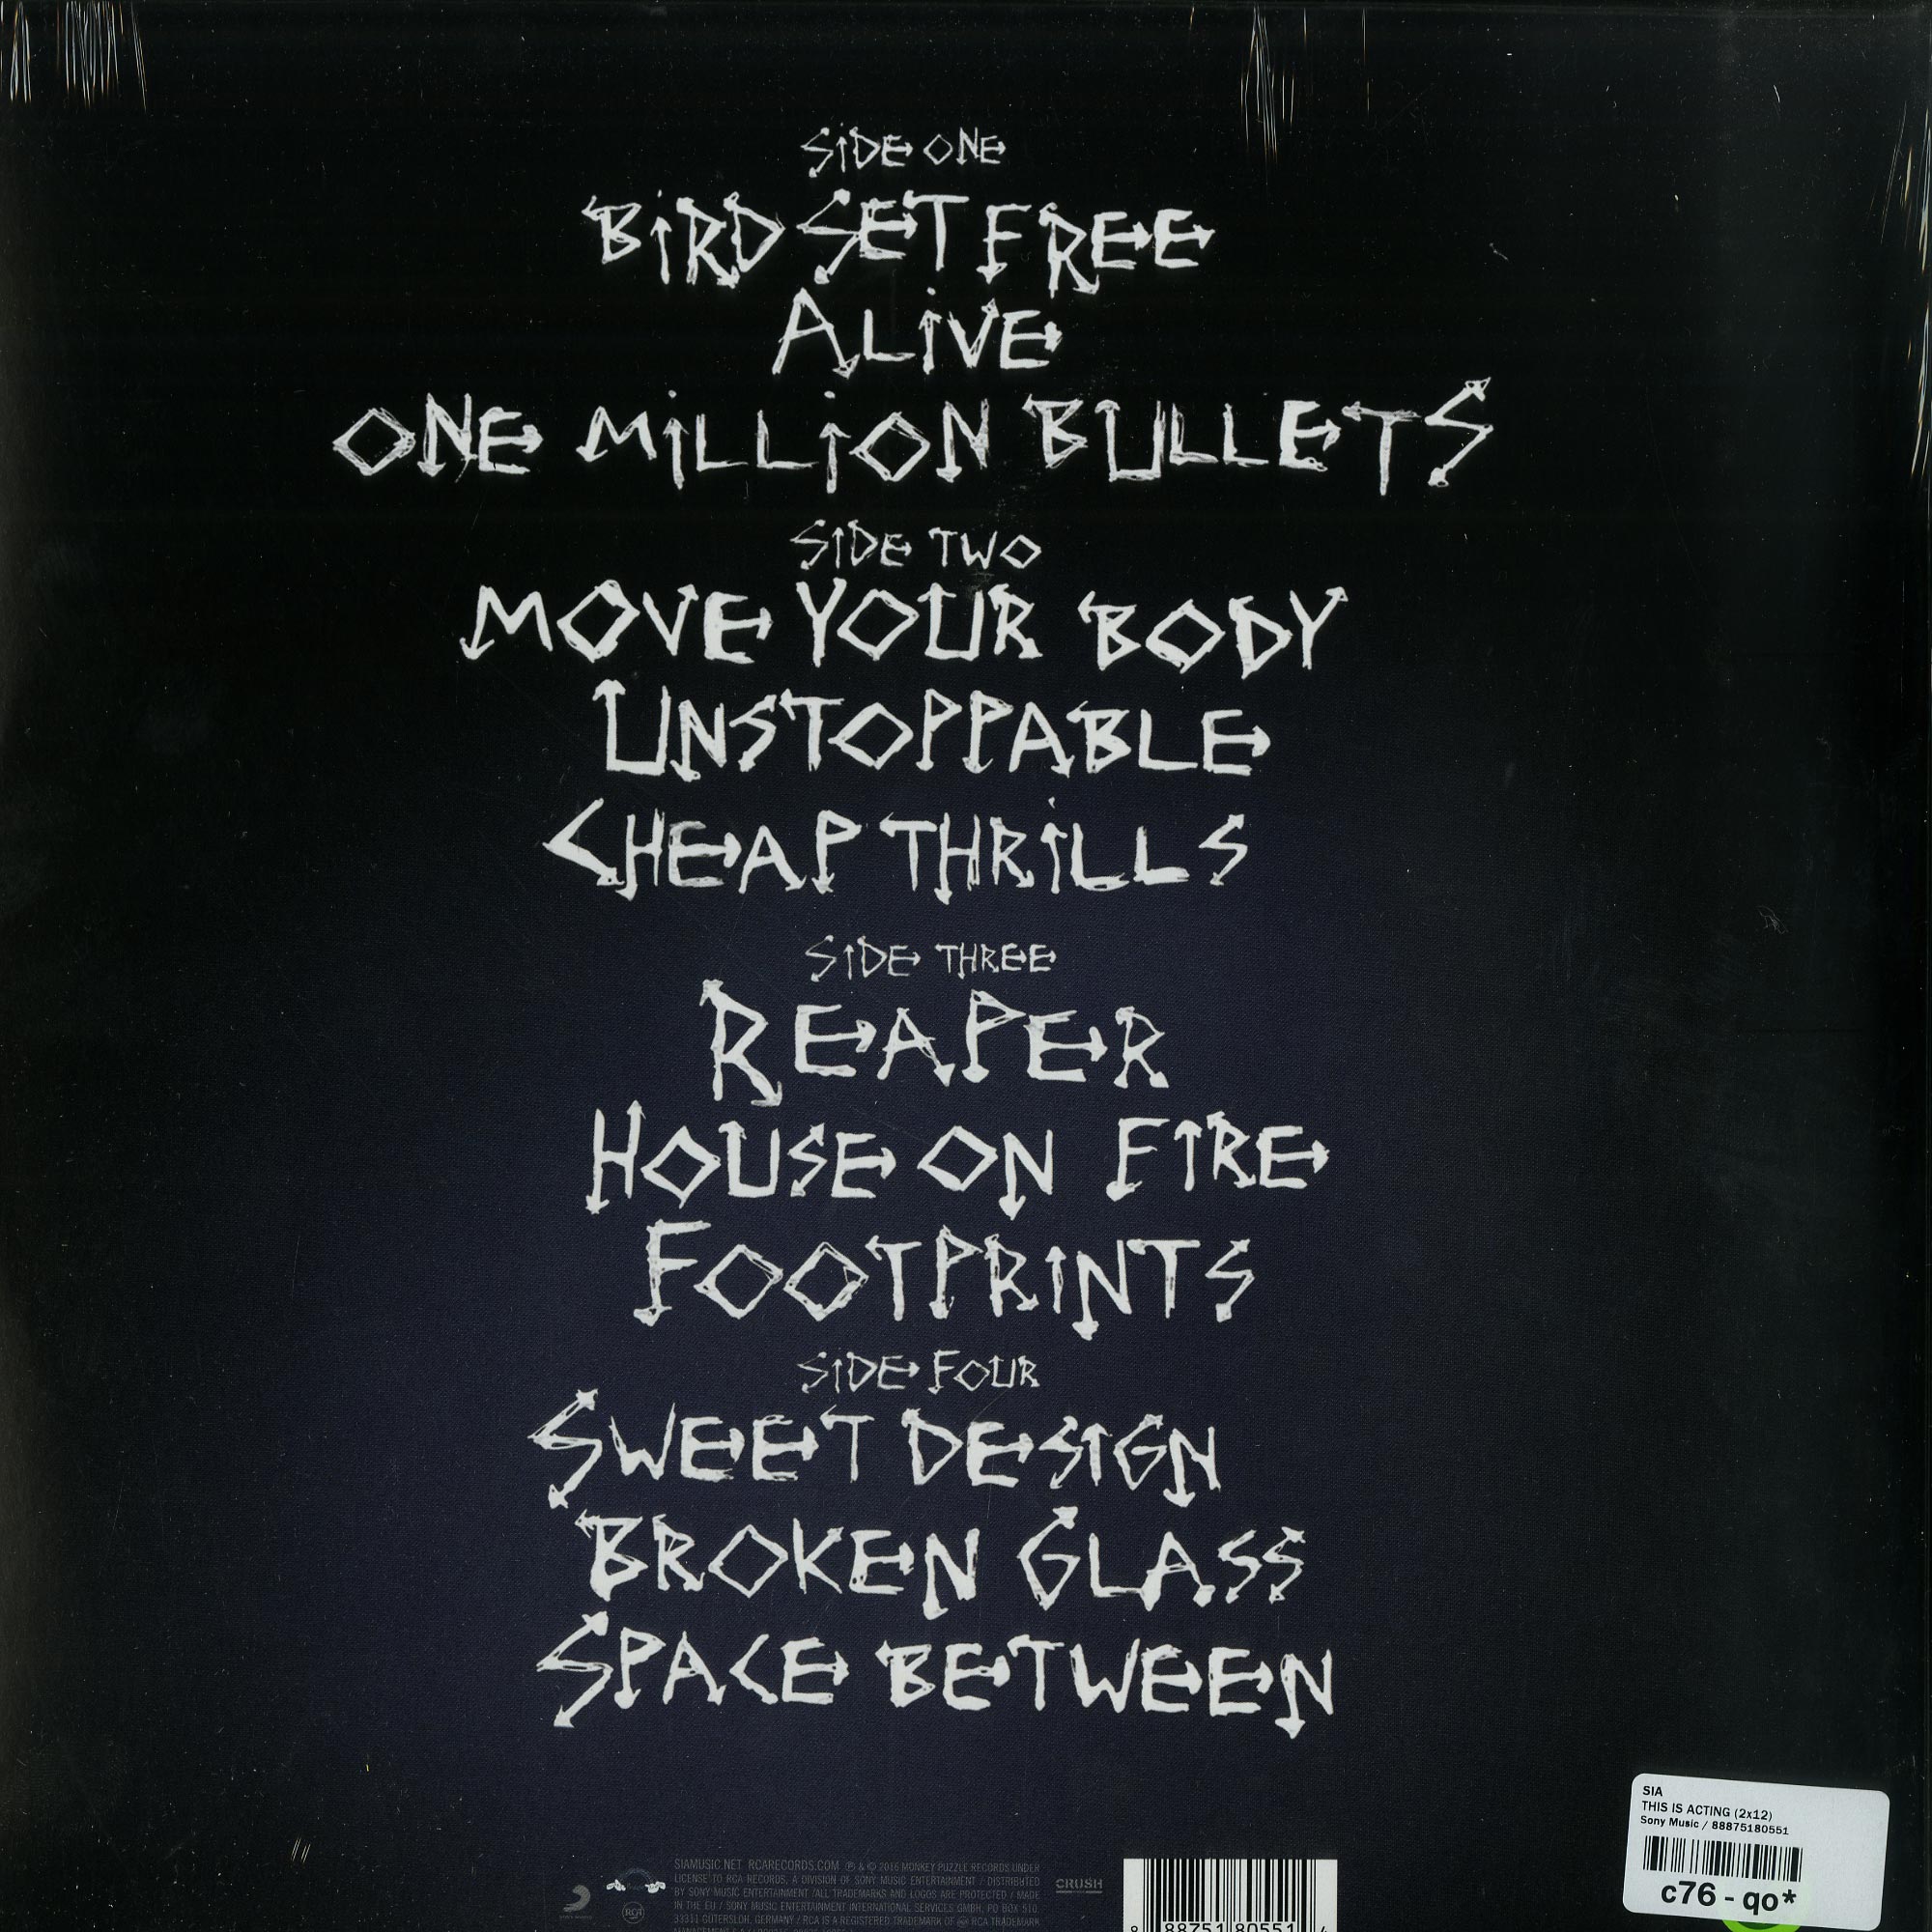 SiDE ONE
BiRD SET FREE
ALiVE
ONE MiLLiON BULLETS
SIDE TWO
MOVE YOUR BODY
UNSTOPPABLE
CHEAP THRiLLS
SIDE THREE
REAPER
HOUSE ON FIRE
FOOTPRINTS
SiDE FOUR
SWEET DESIGN
BROKEN GLASS
SPACE BETWEEN
SIA
THIS IS ACTING (2x12)
Sony Music / 88875180551
c76 - qo*
SIAMUSIC.NET RCARECORDS.COM ℗ & © 2016 MONKEY PUZZLE RECORDS UNDER
LICENSE TO RCA RECORDS, A DIVISION OF SONY MUSIC ENTERTAINMENT / DISTRIBUTED
BY SONY MUSIC ENTERTAINMENT / ALL TRADEMARKS AND LOGOS ARE PROTECTED / MADE
IN THE EU / SONY MUSIC ENTERTAINMENT INTERNATIONAL SERVICES GMBH, PO BOX 510,
33311 GÜTERSLOH, GERMANY / RCA IS A REGISTERED TRADEMARK OF RCA TRADEMARK
CRUSH
RCA
8 88751 80551 4